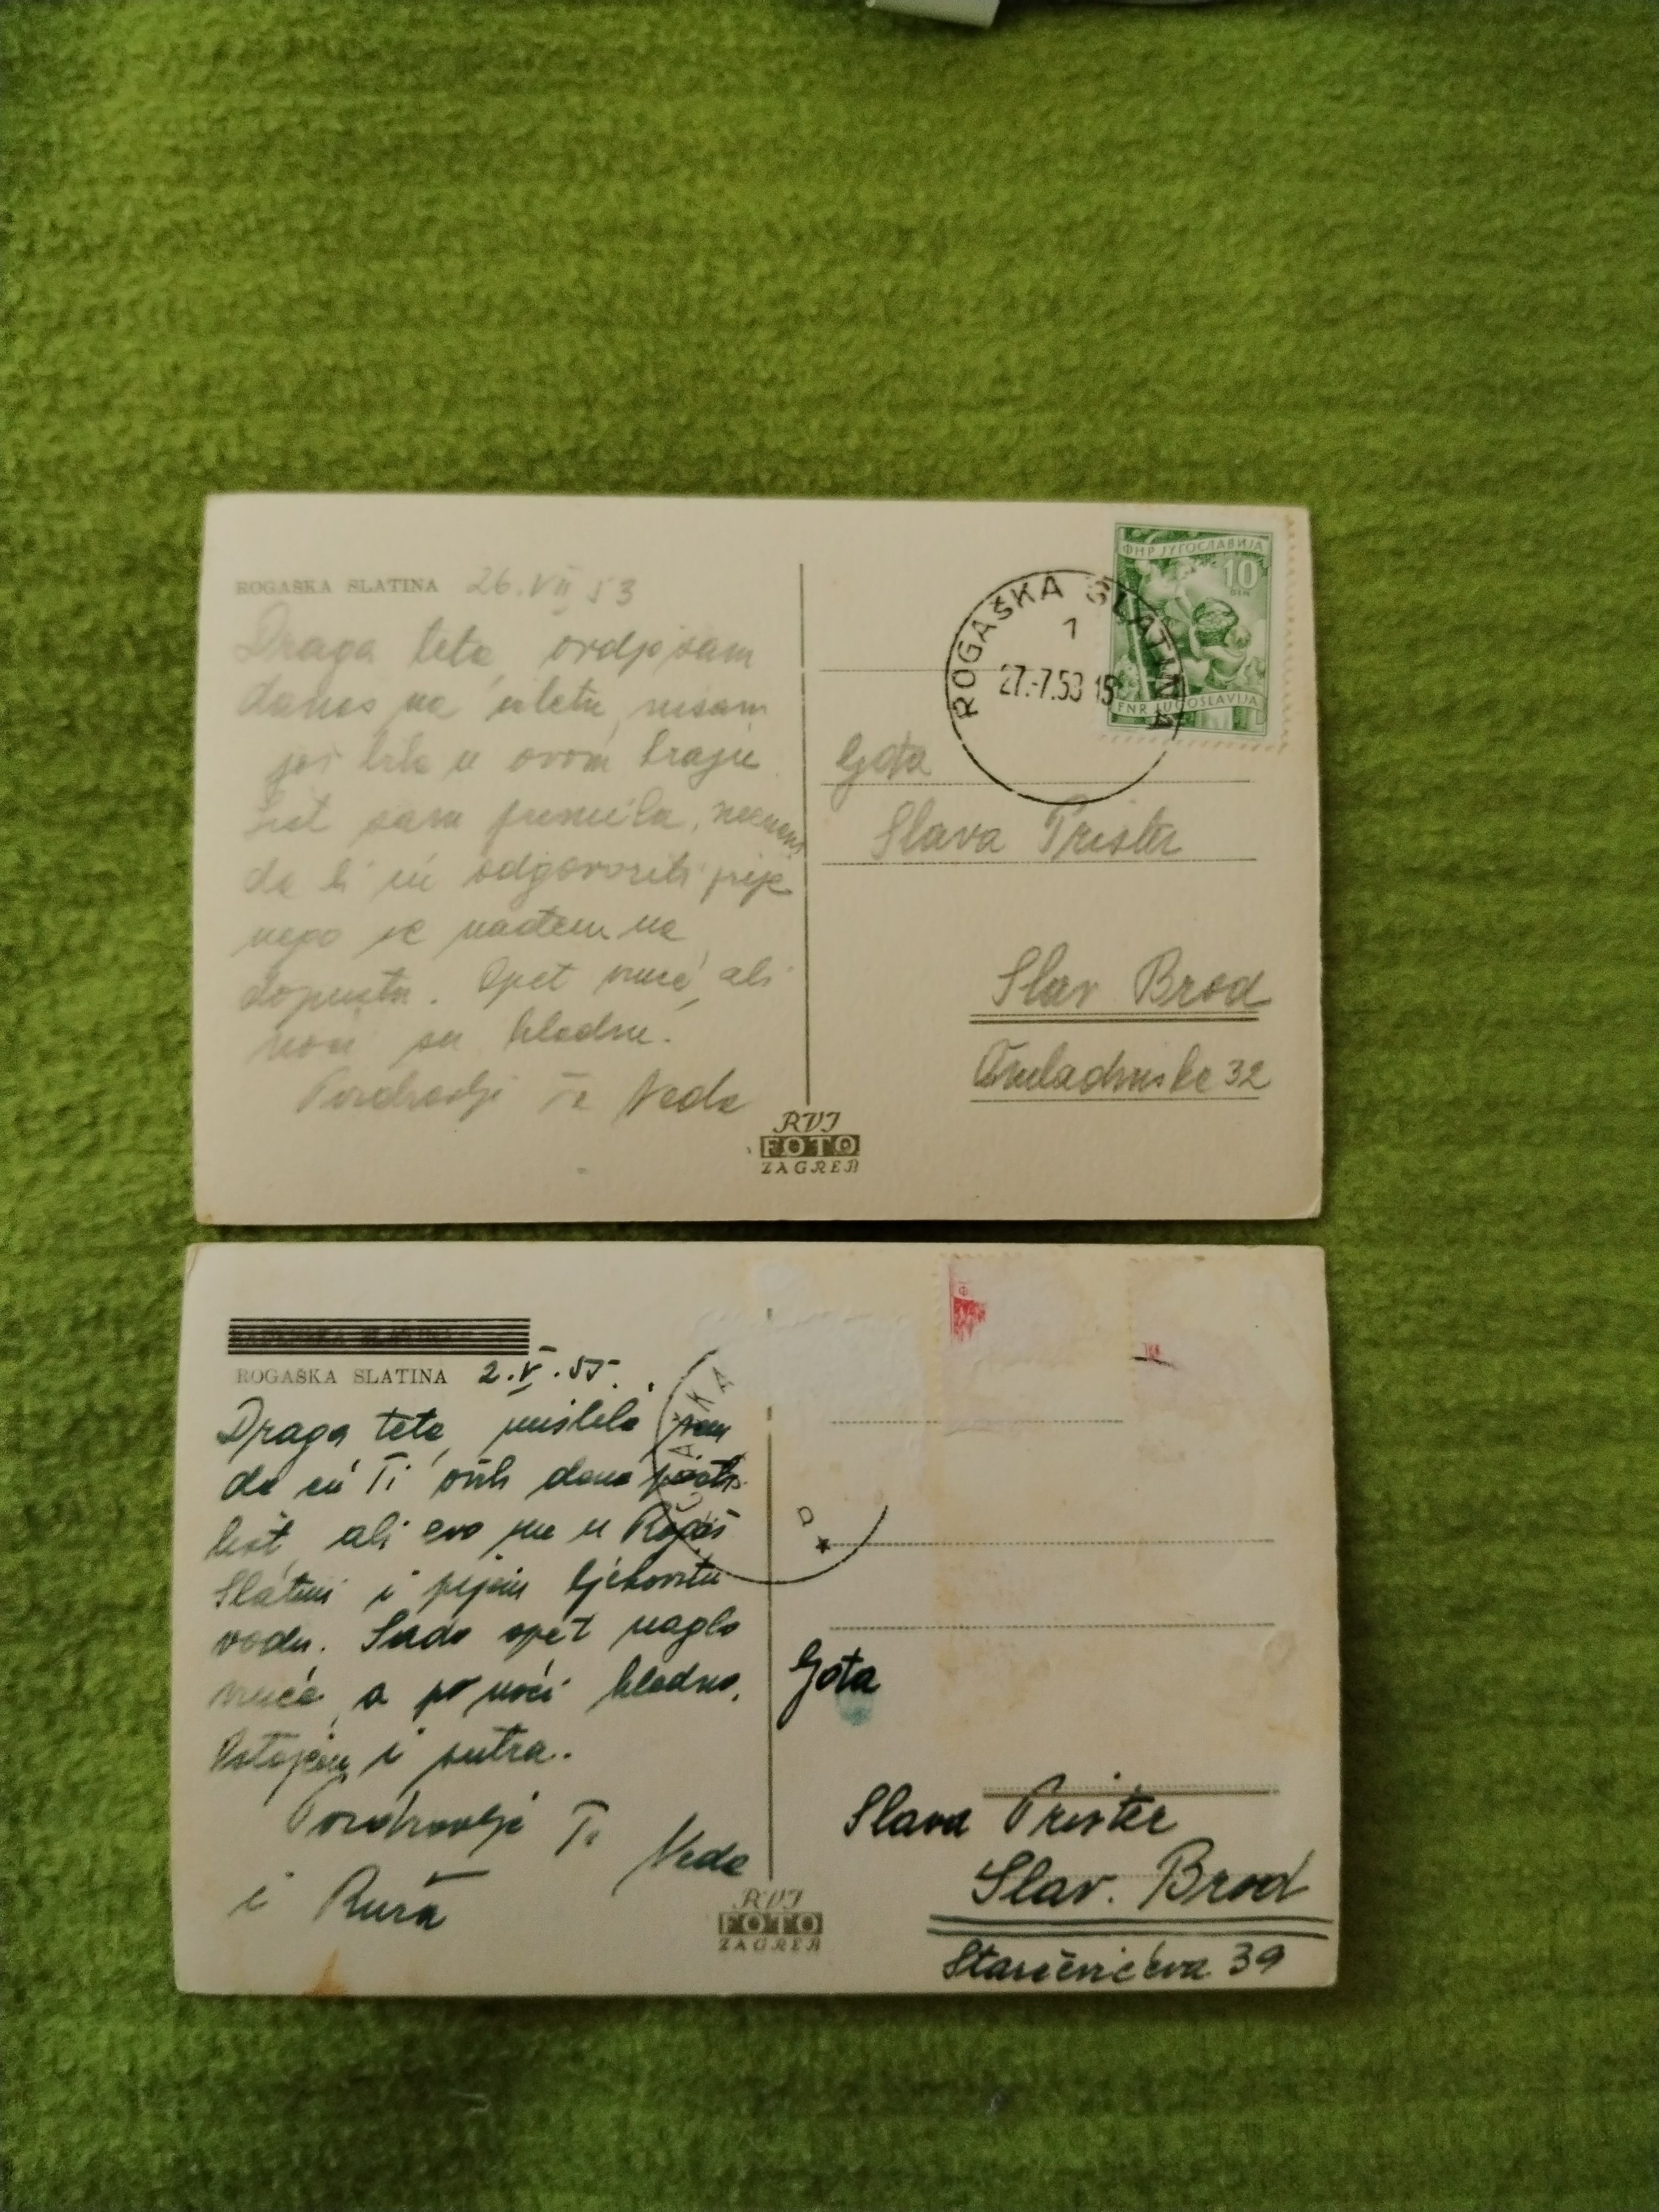 ROGAŠKA SLATINA 26.VII 53
Draga teta, ovdje sam
danas na izletu, nisam
još bila u ovom kraju.
List sam primila, neznam
da li ću odgovoriti prije
nego se nađem na
dopustu. Opet vruće, ali
noći su hladne.
Pozdravlja Te Neda
ФНР ЈУГОСЛАВИЈА
10
DIN
FNR JUGOSLAVIJA
ROGAŠKA SLATINA
1
27.-7.53 15
Gđa
Slava Prister
Slav Brod
Omladinska 32
RVI
FOTO
ZAGREB
ROGAŠKA SLATINA 2.V.55.
Draga teta, mislila sam
da ću Ti ovih dana pisati
list, ali evo me u Rogaš
Slatini i pijem ljekovitu
vodu. Sada opet naglo
vruće, a po noći hladno.
Ostajem i sutra.
Pozdravlja Te Neda
i Ruža
Gđa
Slava Prister
Slav. Brod
Starčevićeva 39
RVI
FOTO
ZAGREB